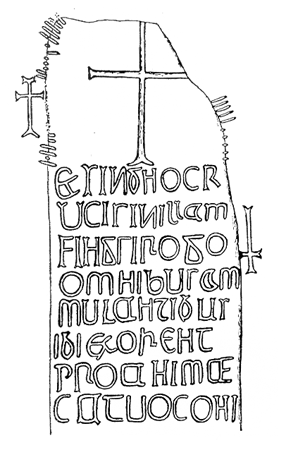 & singno cr
ucis in illam
fingsi rogo
omnibus am
mulantibus
ibi exorent
pro animæ
catuoconi